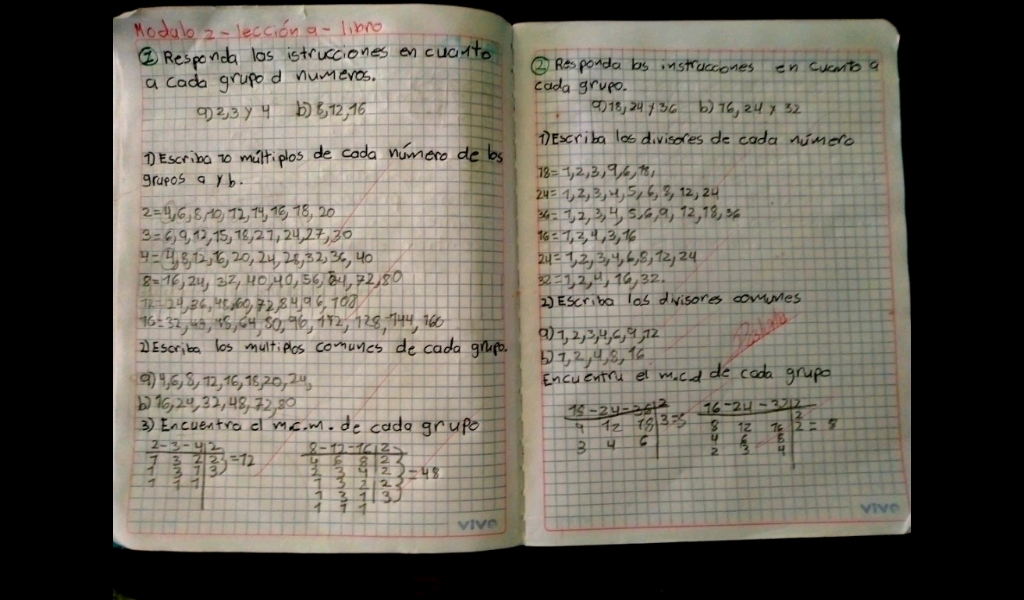 Modulo 2 - lección 9 - libro
① Responda las istrucciones en cuanto
a cada grupo d numeros.
a) 2,3 y 4 b) 8,12,16
1) Escriba 10 múltiplos de cada número de los
grupos a y b.
2=4,6,8,10,12,14,16,18,20
3=6,9,12,15,18,21,24,27,30
4=4,8,12,16,20,24,28,32,36,40
8=16,24,32,40,40,56,64,72,80
12=24,36,48,60,72,84,96,108
16=32,48, 64,80,96,112,128,144,160
2) Escriba los multiplos comunes de cada grupo.
a) 4,6,8,12,16,18,20,24,
b) 16,24,32,48,72,80
3) Encuentra el m.c.m. de cada grupo
2-3-4 2
1 3 2 2
1 3 1 3 =12
1 1 1
8-12-16 2
4 6 8 2
2 3 4 2 =48
1 3 2 2
1 3 1 3
1 1 1
vivo
② Responda las instrucciones en cuanto a
cada grupo.
a) 18,24 y 36 b) 16,24 y 32
1) Escriba los divisores de cada número
18=1,2,3,9,6,18,
24=1,2,3,4,5,6,8,12,24
36=1,2,3,4,5,6,9,12,18,36
16=1,2,4,3,16
24=1,2,3,4,6,8,12,24
32=1,2,4,16,32.
2) Escriba los divisores comunes
a) 1,2,3,4,6,9,12
b) 1,2,4,8,16
Encuentru el m.c.d de cada grupo
18-24-36 2
9 12 18 3
3 4 6
16-24-32 2
8 12 16 2
4 6 8 2 = 8
2 3 4
vivo